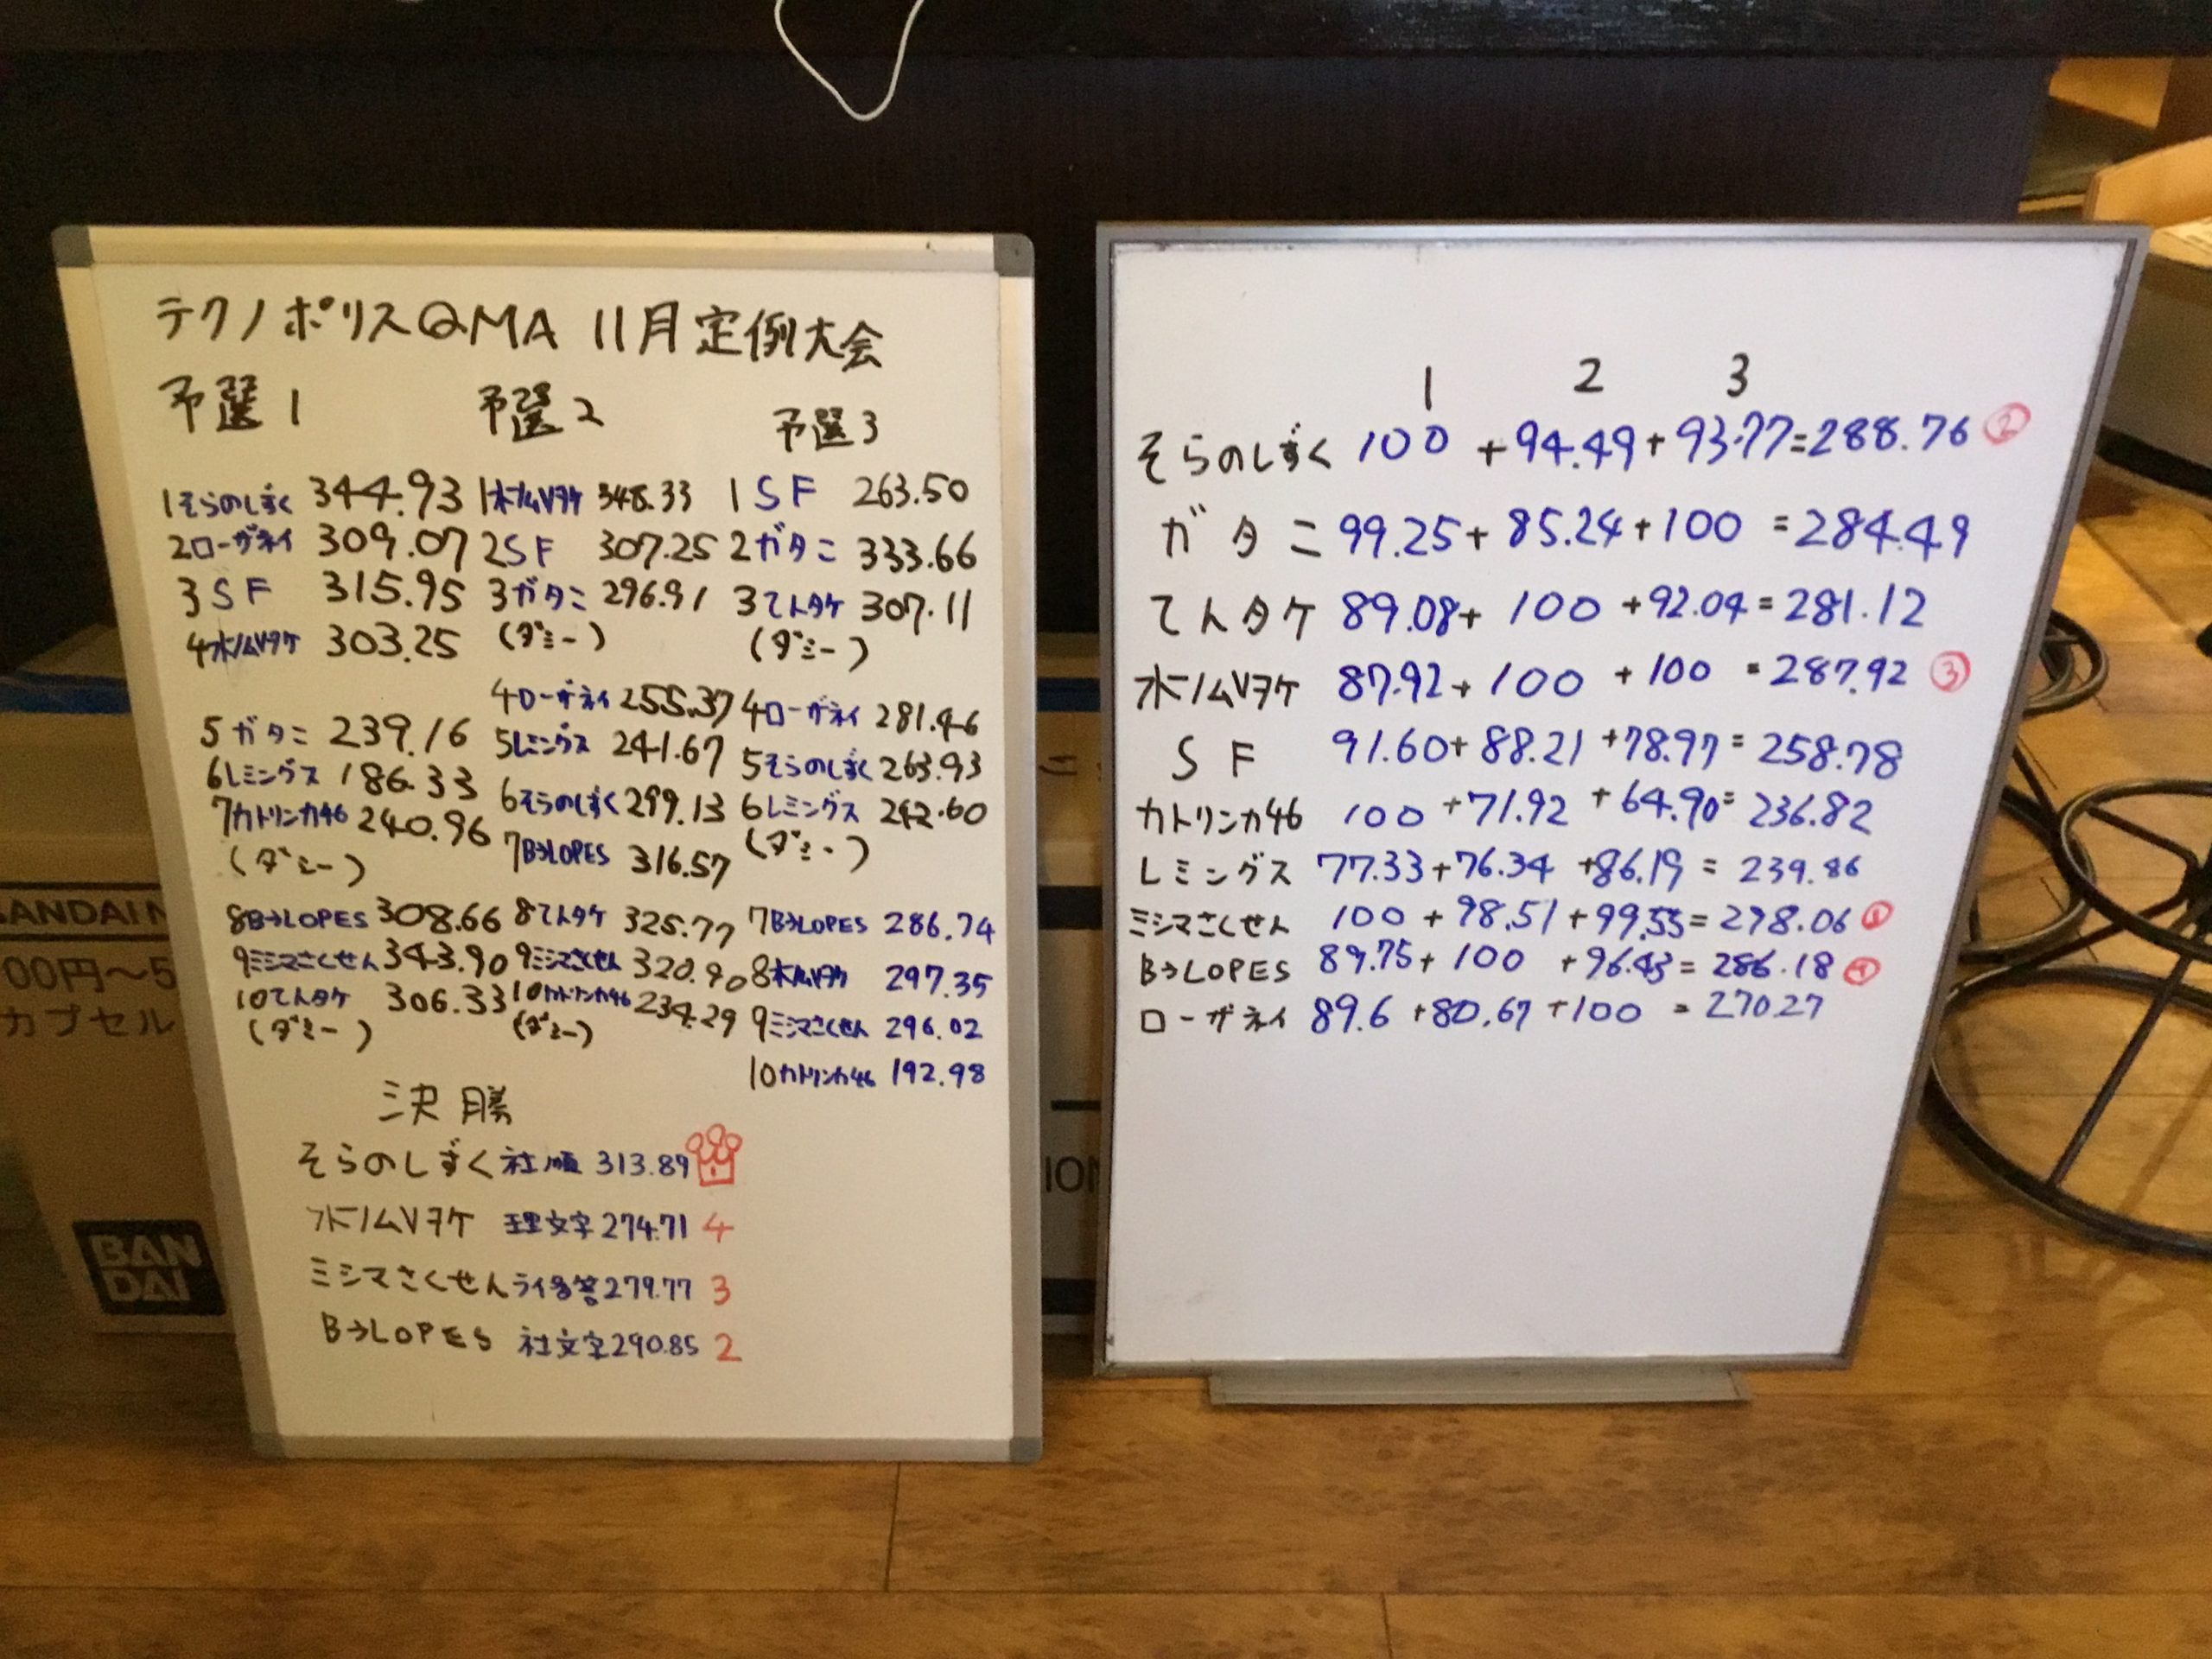 テクノポリスQMA 11月定例大会
予選1 予選2 予選3
1そらのしずく 344.93 1ホノムVヲケ 348.33 1SF 263.50
2ローザネイ 309.07 2SF 307.25 2ガタニ 333.66
3SF 315.95 3ガタニ 296.91 3てんタケ 307.11
4ホノムVヲケ 303.25 (ダミー) (ダミー)
4ローザネイ 255.37 4ローザネイ 281.46
5ガタニ 239.16 5レミングス 241.67 5そらのしずく 263.93
6レミングス 186.33 6そらのしずく 299.13 6レミングス 242.60
7カトリンカ46 240.96 7B→LOPES 316.57 (ダミー)
(ダミー)
8B→LOPES 308.66 8てんタケ 325.77 7B→LOPES 286.74
9ミシマさくせん 343.90 9ミシマさくせん 320.90 8ホノムVヲケ 297.35
10てんタケ 306.33 10カトリンカ46 234.29 9ミシマさくせん 296.02
(ダミー) (ダミー)
10カトリンカ46 192.98
決勝
そらのしずく 社順 313.89 1
ホノムVヲケ 理文字 274.71 4
ミシマさくせん ライ多答 279.77 3
B→LOPES 社文字 290.85 2
1 2 3
そらのしずく 100 + 94.49 + 93.77 = 288.76 ②
ガタニ 99.25 + 85.24 + 100 = 284.49
てんタケ 89.08 + 100 + 92.04 = 281.12
ホノムVヲケ 87.92 + 100 + 100 = 287.92 ③
SF 91.60 + 88.21 + 78.97 = 258.78
カトリンカ46 100 + 71.92 + 64.90 = 236.82
レミングス 77.33 + 76.34 + 86.19 = 239.86
ミシマさくせん 100 + 98.51 + 99.55 = 298.06 ①
B→LOPES 89.75 + 100 + 96.43 = 286.18 ④
ローザネイ 89.6 + 80.67 + 100 = 270.27
BANDAI
00円～5
カプセル
BAN
DAI